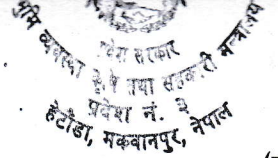 भूमि व्यवस्था कृषि तथा सहकारी मन्त्रालय
प्रदेश सरकार
प्रदेश नं. ३
हेटौंडा, मकवानपुर, नेपाल